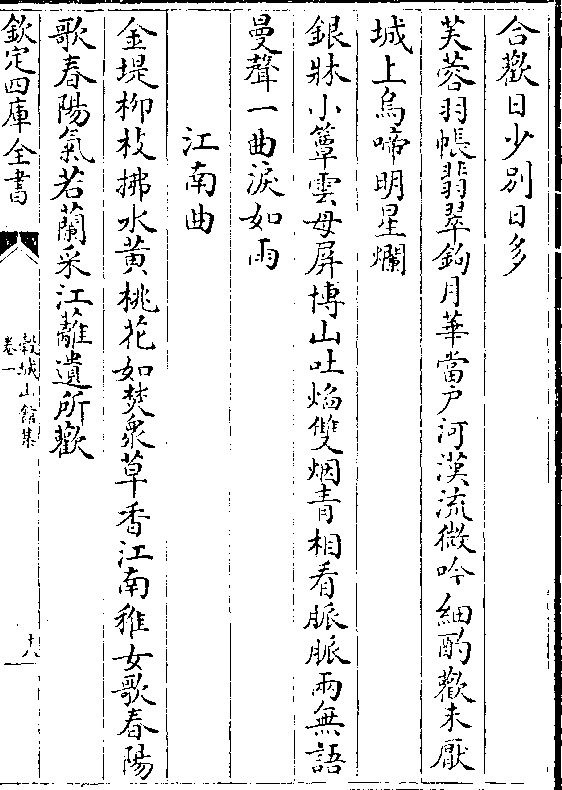 合歡日少別日多
芙蓉羽帳翡翠鉤月華當戶河漢流微吟細酌歡未厭
城上烏啼明星爛
銀牀小簟雲母屏博山吐焰雙烟青相看脈脈兩無語
曼聲一曲淚如雨
江南曲
金堤柳枝拂水黃桃花如焚衆草香江南稚女歌春陽
歌春陽氣若蘭采江蘺遺所歡
欽定四庫全書
穀城山館集
卷一
十八